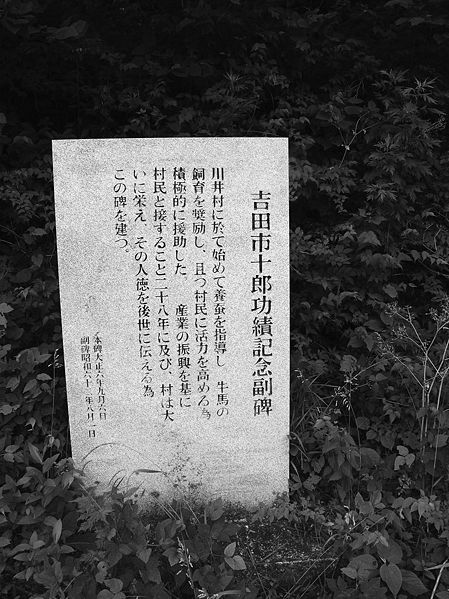 吉田市十郎功績記念副碑
川井村に於て始めて養蚕を指導し 牛馬の
飼育を奨励し、且つ村民に活力を高める為
積極的に援助した 産業の振興を基に
村民と接すること二十八年に及び 村は大
いに栄え、その人徳を後世に伝える為
この碑を建つ。
本碑大正六年九月六日
副碑昭和六十二年八月一日